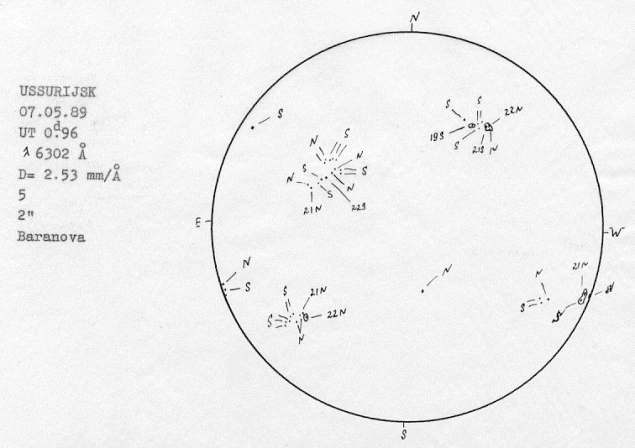 USSURIJSK
07.05.89
UT 0.d96
λ 6302 Å
D= 2.53 mm/Å
5
2"
Baranova
N
S
S
S
22N
19S
S
21S
N
S
N
N
S
S
N
S
N
21N
22S
E
W
N
S
N
N
21N
N
S
S
S
21N
S
22N
N
S